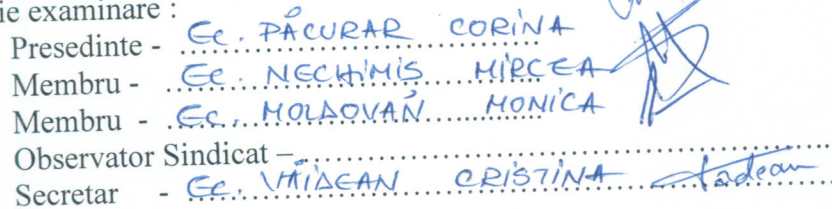 ie examinare :
Presedinte - Ec. PĂCURAR CORINA
Membru - Ec. NECHIMIȘ MIRCEA
Membru - Ec. MOLDOVAN MONICA
Observator Sindicat –
Secretar - Ec. VĂIDEAN CRISTINA